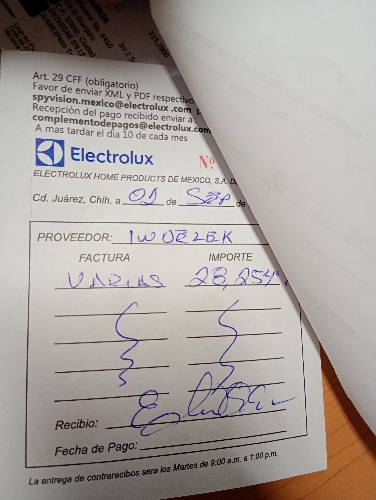 Art. 29 CFF (obligatorio)
Favor de enviar XML y PDF respectivo
spyvision.mexico@electrolux.com
Recepción del pago recibido enviar a
complementodepagos@electrolux.com
A mas tardar el dia 10 de cada mes
Electrolux
Nº
ELECTROLUX HOME PRODUCTS DE MEXICO, S.A. D
Cd. Juárez, Chih. a 01 de SEP de
PROVEEDOR: IWOELEK
FACTURA IMPORTE
VARIAS 28,254
Recibio:
Fecha de Pago:
La entrega de contrarecibos sera los Martes de 9:00 a.m. a 1:00 p.m.